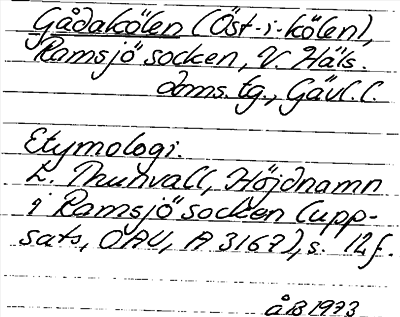 Gådakölen (Öst-i-kölen),
Ramsjö socken, V. Häls.
doms.tg., Gävl.l.
Etymologi.
L. Thunvall, Höjdnamn
i Ramsjö socken (upp-
sats, OAU, A 3167), s. 12f.
åB 1973